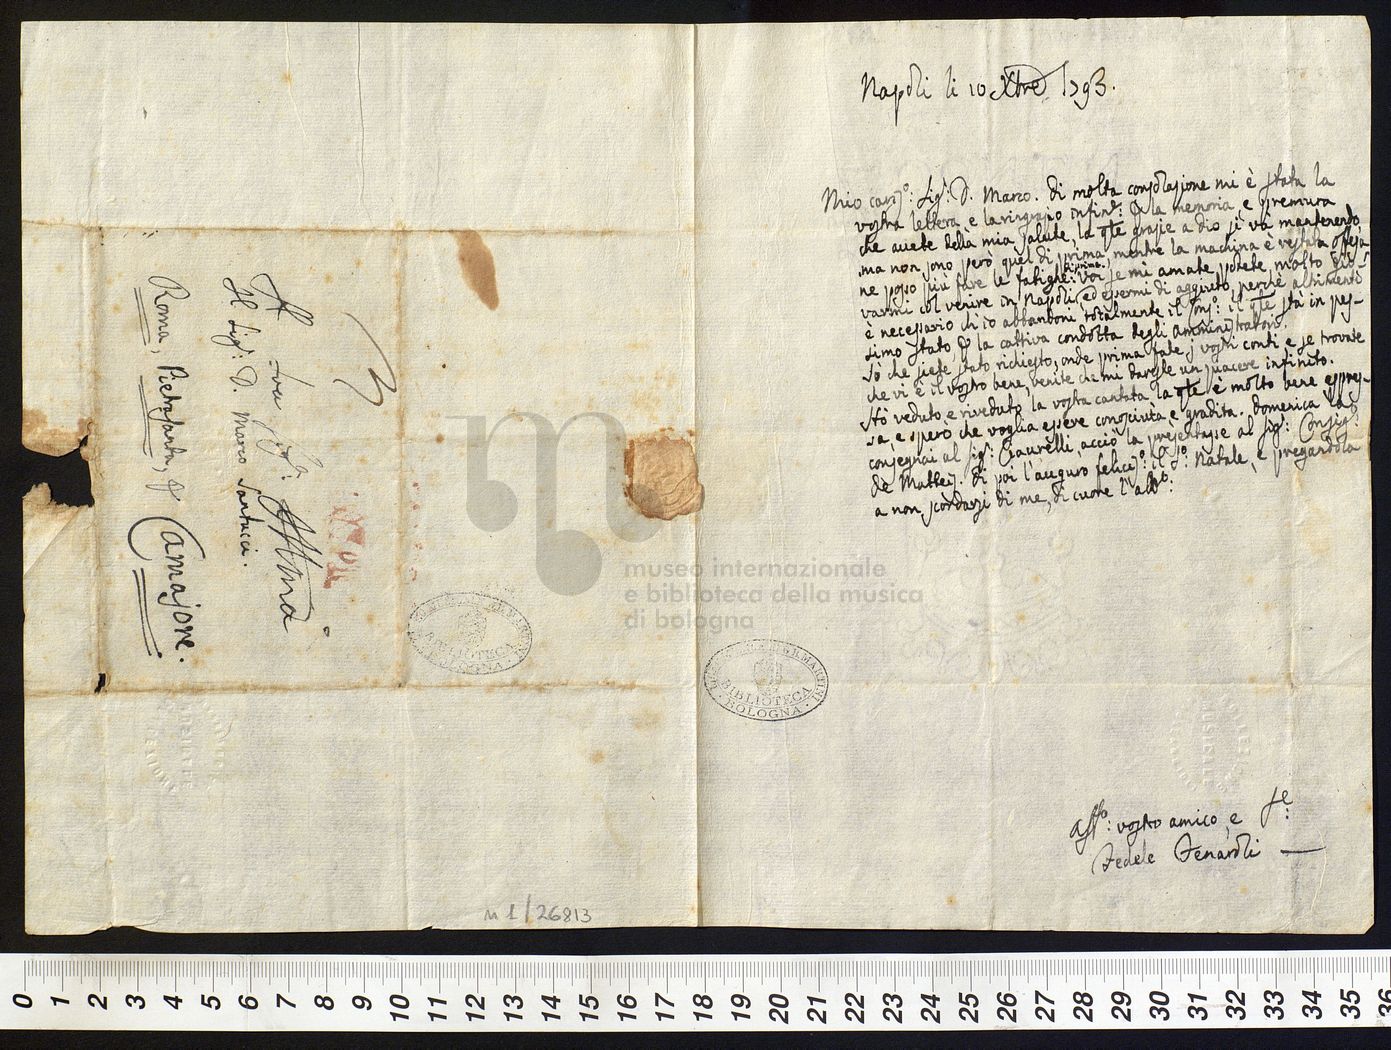 Napoli li 10 Xbre 1793.
Mio carmo: Sigr: D. Marco. Di molta consolazione mi è stata la
vostra lettera, e la ringrazio infinte: p la memoria, e premura
che avete della mia salute, la qte grazie a dio si và mantenendo,
ma non sono però quel di prima, mentre la machina è restata offesa
ne posso più fare le fatighe di prima. Voi se mi amate potete molto gio-
varmi col venire in Napoli, ed essermi di aggiuto, perchè altrimenti
è necessario ch'io abbandoni totalmente il Conso: il qte stà in pes-
simo stato, p la cattiva condotta degli amministratori.
Sò che siete stato richiesto, onde prima fate j vostri conti e se trovate
che vi è il vostro bene, venite che mi dareste un piacere infinito.
Hò veduto e riveduto la vostra cantata la qte è molto bene espres-
sa, e spero che voglia essere conosciuta e gradita. Domenica la
consegnai al Sigr: Ciaurelli, acciò la presentasse al Sigr: Consigro:
de Mattej. Di poi l'auguro felicismo: il So: Natale, e pregandola
a non scordarsi di me, di cuore l'abbo:
Affmo: vostro amico, e Se:
Fedele Fenaroli
Al Sigr: D. Marco Santucci.
Roma, Pietrasanta, p Camajore.
museo internazionale
e biblioteca della musica
di bologna
BIBLIOTECA
BOLOGNA
BIBLIOTECA
BOLOGNA
n 1/26813
0 1 2 3 4 5 6 7 8 9 10 11 12 13 14 15 16 17 18 19 20 21 22 23 24 25 26 27 28 29 30 31 32 33 34 35 36